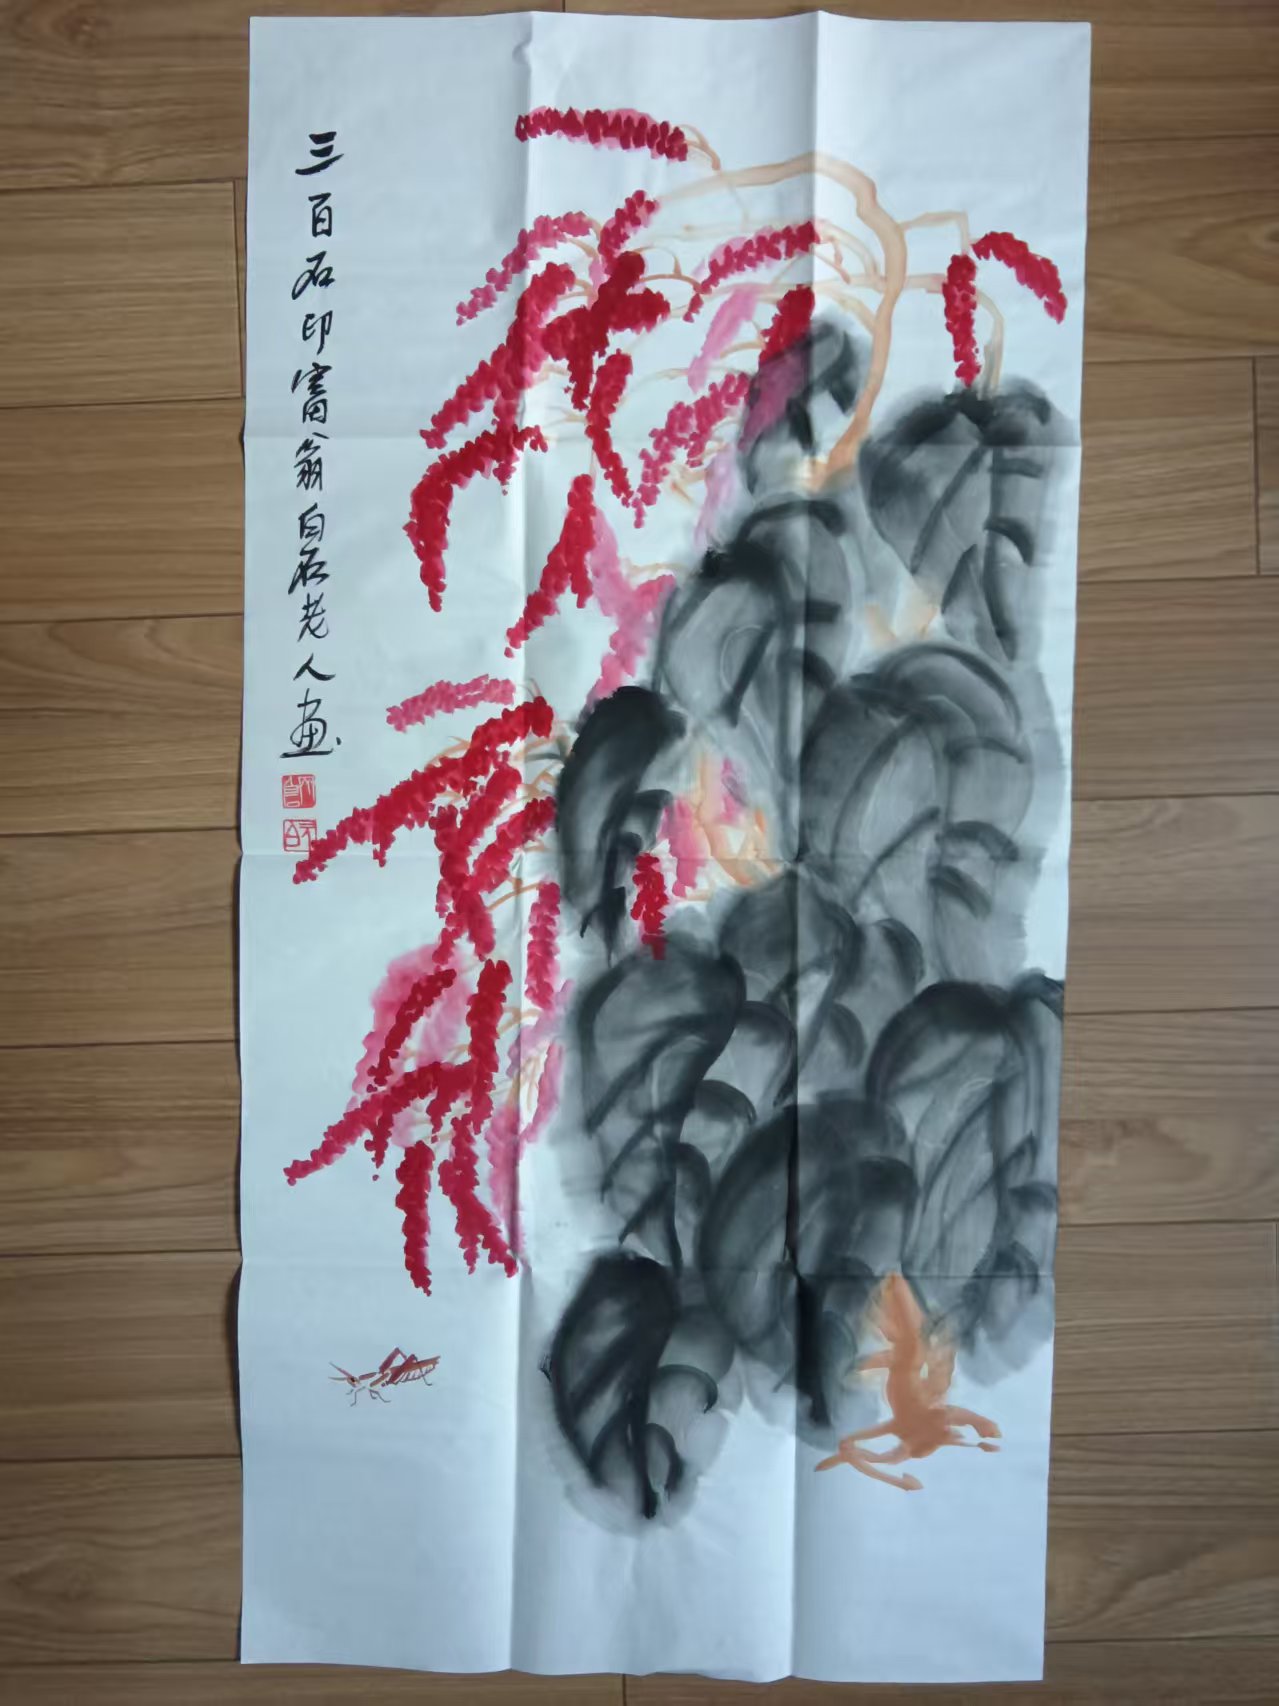 三百石印富翁白石老人画